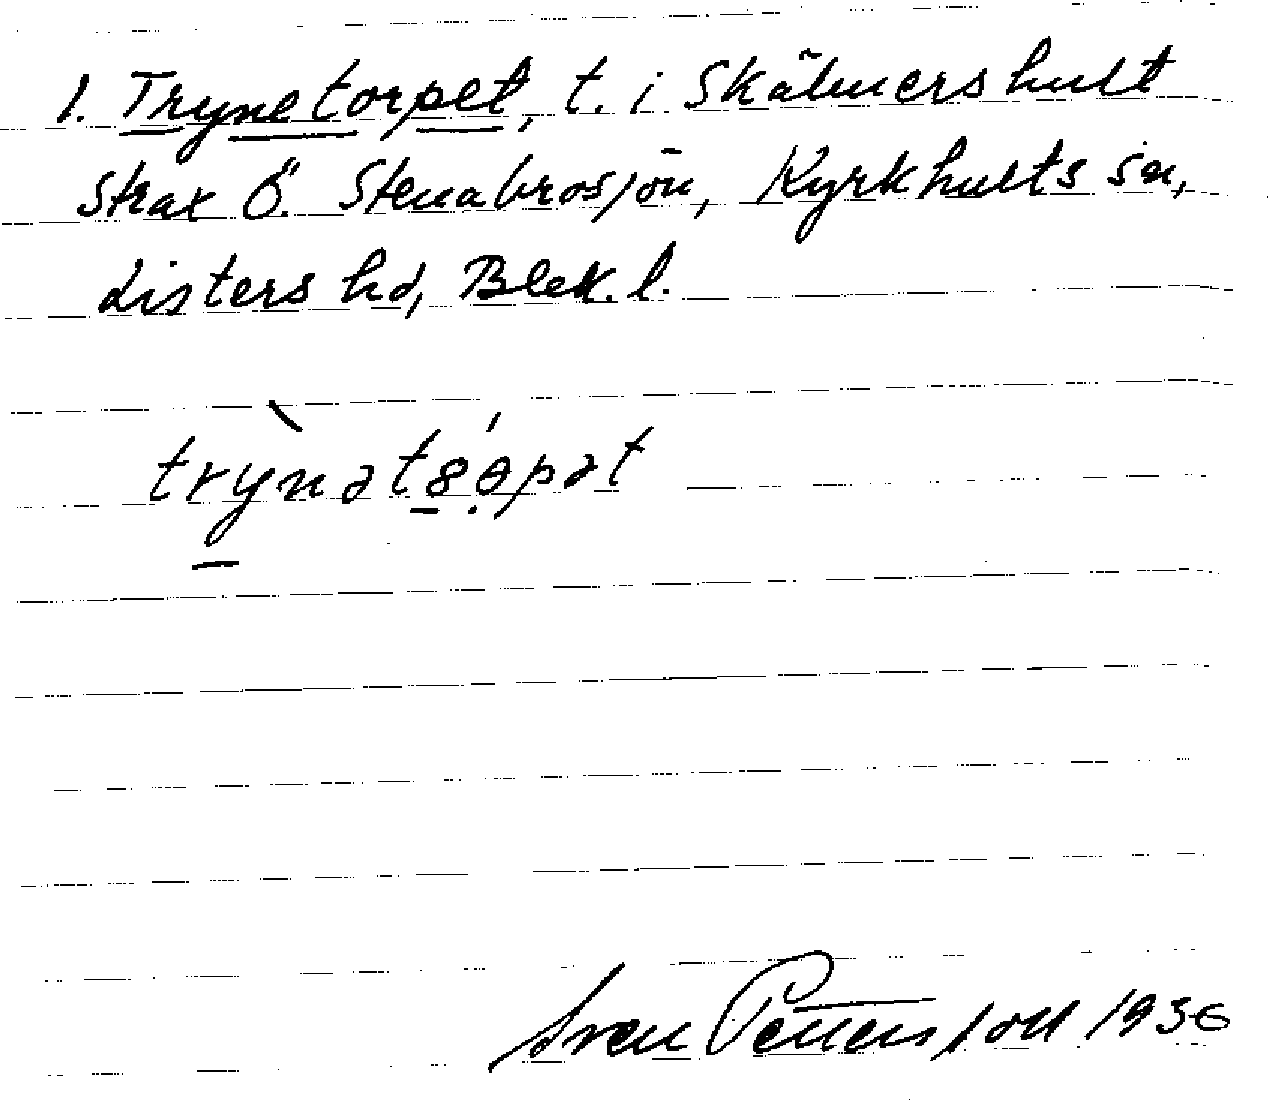 1. Trynetorpet, t. i Skälmershult
strax Ö. Stenabrosjön, Kyrkhults sn,
Listers hd, Blek. l.
Sven Pettersson 1936